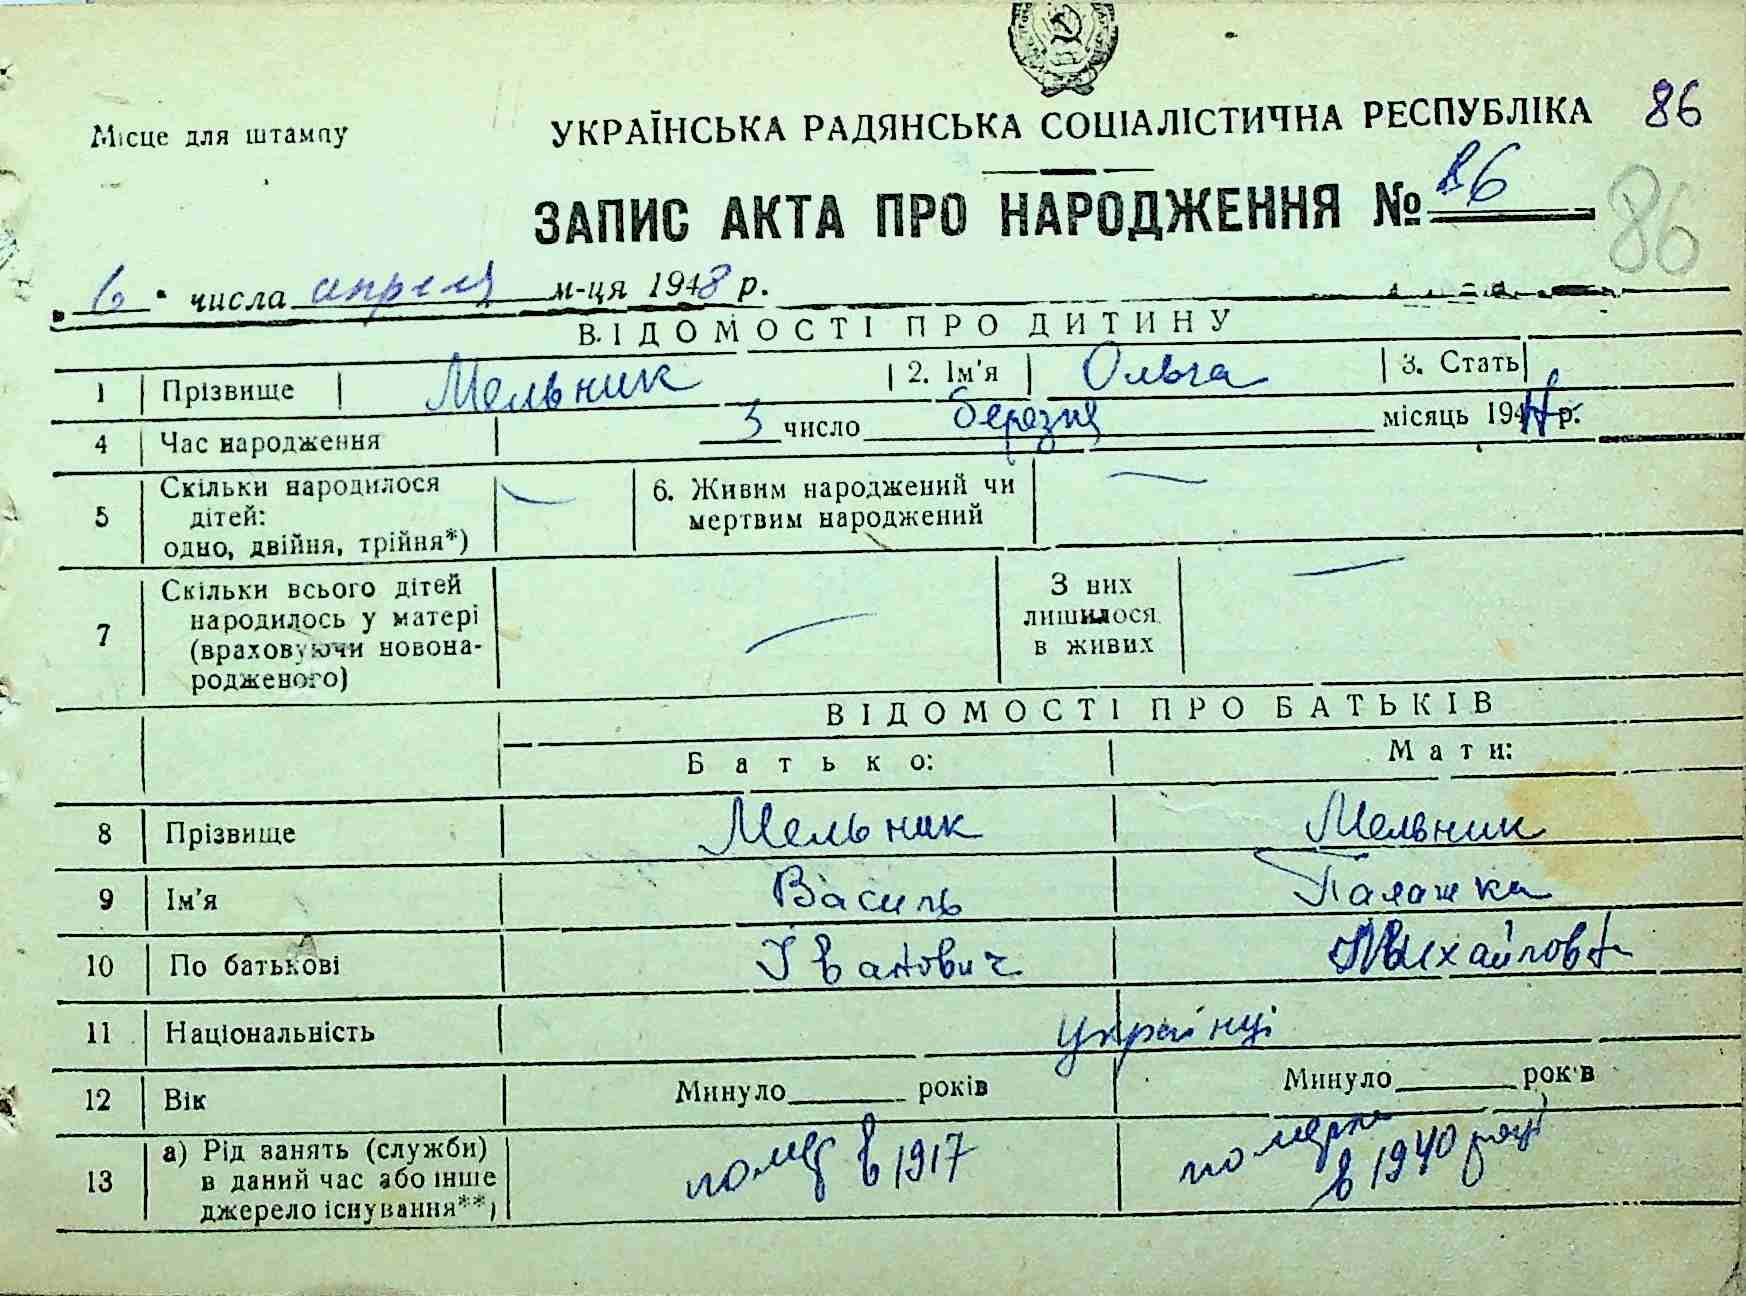 86
Місце для штампу
УКРАЇНСЬКА РАДЯНСЬКА СОЦІАЛІСТИЧНА РЕСПУБЛІКА
ЗАПИС АКТА ПРО НАРОДЖЕННЯ № 86
86
„ 6 " числа апреля м-ця 1948 р.
ВІДОМОСТІ ПРО ДИТИНУ
1 Прізвище Мельник 2. Ім'я Ольга 3. Стать
4 Час народження 3 число березня місяць 191 р.
5 Скільки народилося дітей: одно, двійня, трійня*) — 6. Живим народжений чи мертвим народжений —
7 Скільки всього дітей народилось у матері (враховуючи новонародженого) — З них лишилося в живих —
ВІДОМОСТІ ПРО БАТЬКІВ
Батько: Мати:
8 Прізвище Мельник Мельник
9 Ім'я Василь Палажка
10 По батькові Іванович Михайловн
11 Національність українці
12 Вік Минуло років Минуло років
13 а) Рід занять (служби) в даний час або інше джерело існування**) помер в 1917 померла в 1940 році